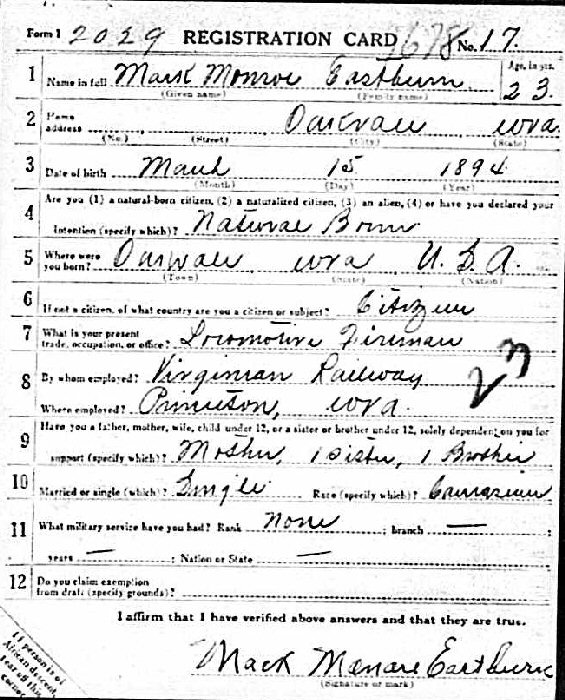 Form 1 2029 REGISTRATION CARD 1678 No. 17.
1 Name in full Mack Monroe Eastburn Age, in yrs.
(Given name) (Family name) 23.
2 Home address Oakvale W Va.
(No.) (Street) (City) (State)
3 Date of birth March 15 1894
(Month) (Day) (Year)
4 Are you (1) a natural-born citizen, (2) a naturalized citizen, (3) an alien, (4) or have you declared your
intention (specify which)? Natural Born
5 Where were you born? Oakvale W Va U. S. A.
(Town) (State) (Nation)
6 If not a citizen, of what country are you a citizen or subject? Citizen
7 What is your present trade, occupation, or office? Locomotive Fireman
8 By whom employed? Virginian Railway
Where employed? Princeton, W Va.
9 Have you a father, mother, wife, child under 12, or a sister or brother under 12, solely dependent on you for
support (specify which)? Mother, 1 Sister, 1 Brother
10 Married or single (which)? Single Race (specify which)? Caucasian
11 What military service have you had? Rank None ; branch — ;
years — ; Nation or State —
12 Do you claim exemption
from draft (specify grounds)?
I affirm that I have verified above answers and that they are true.
Mack Monroe Eastburn
(Signature or mark)
If person is of
African descent,
tear off this
corner